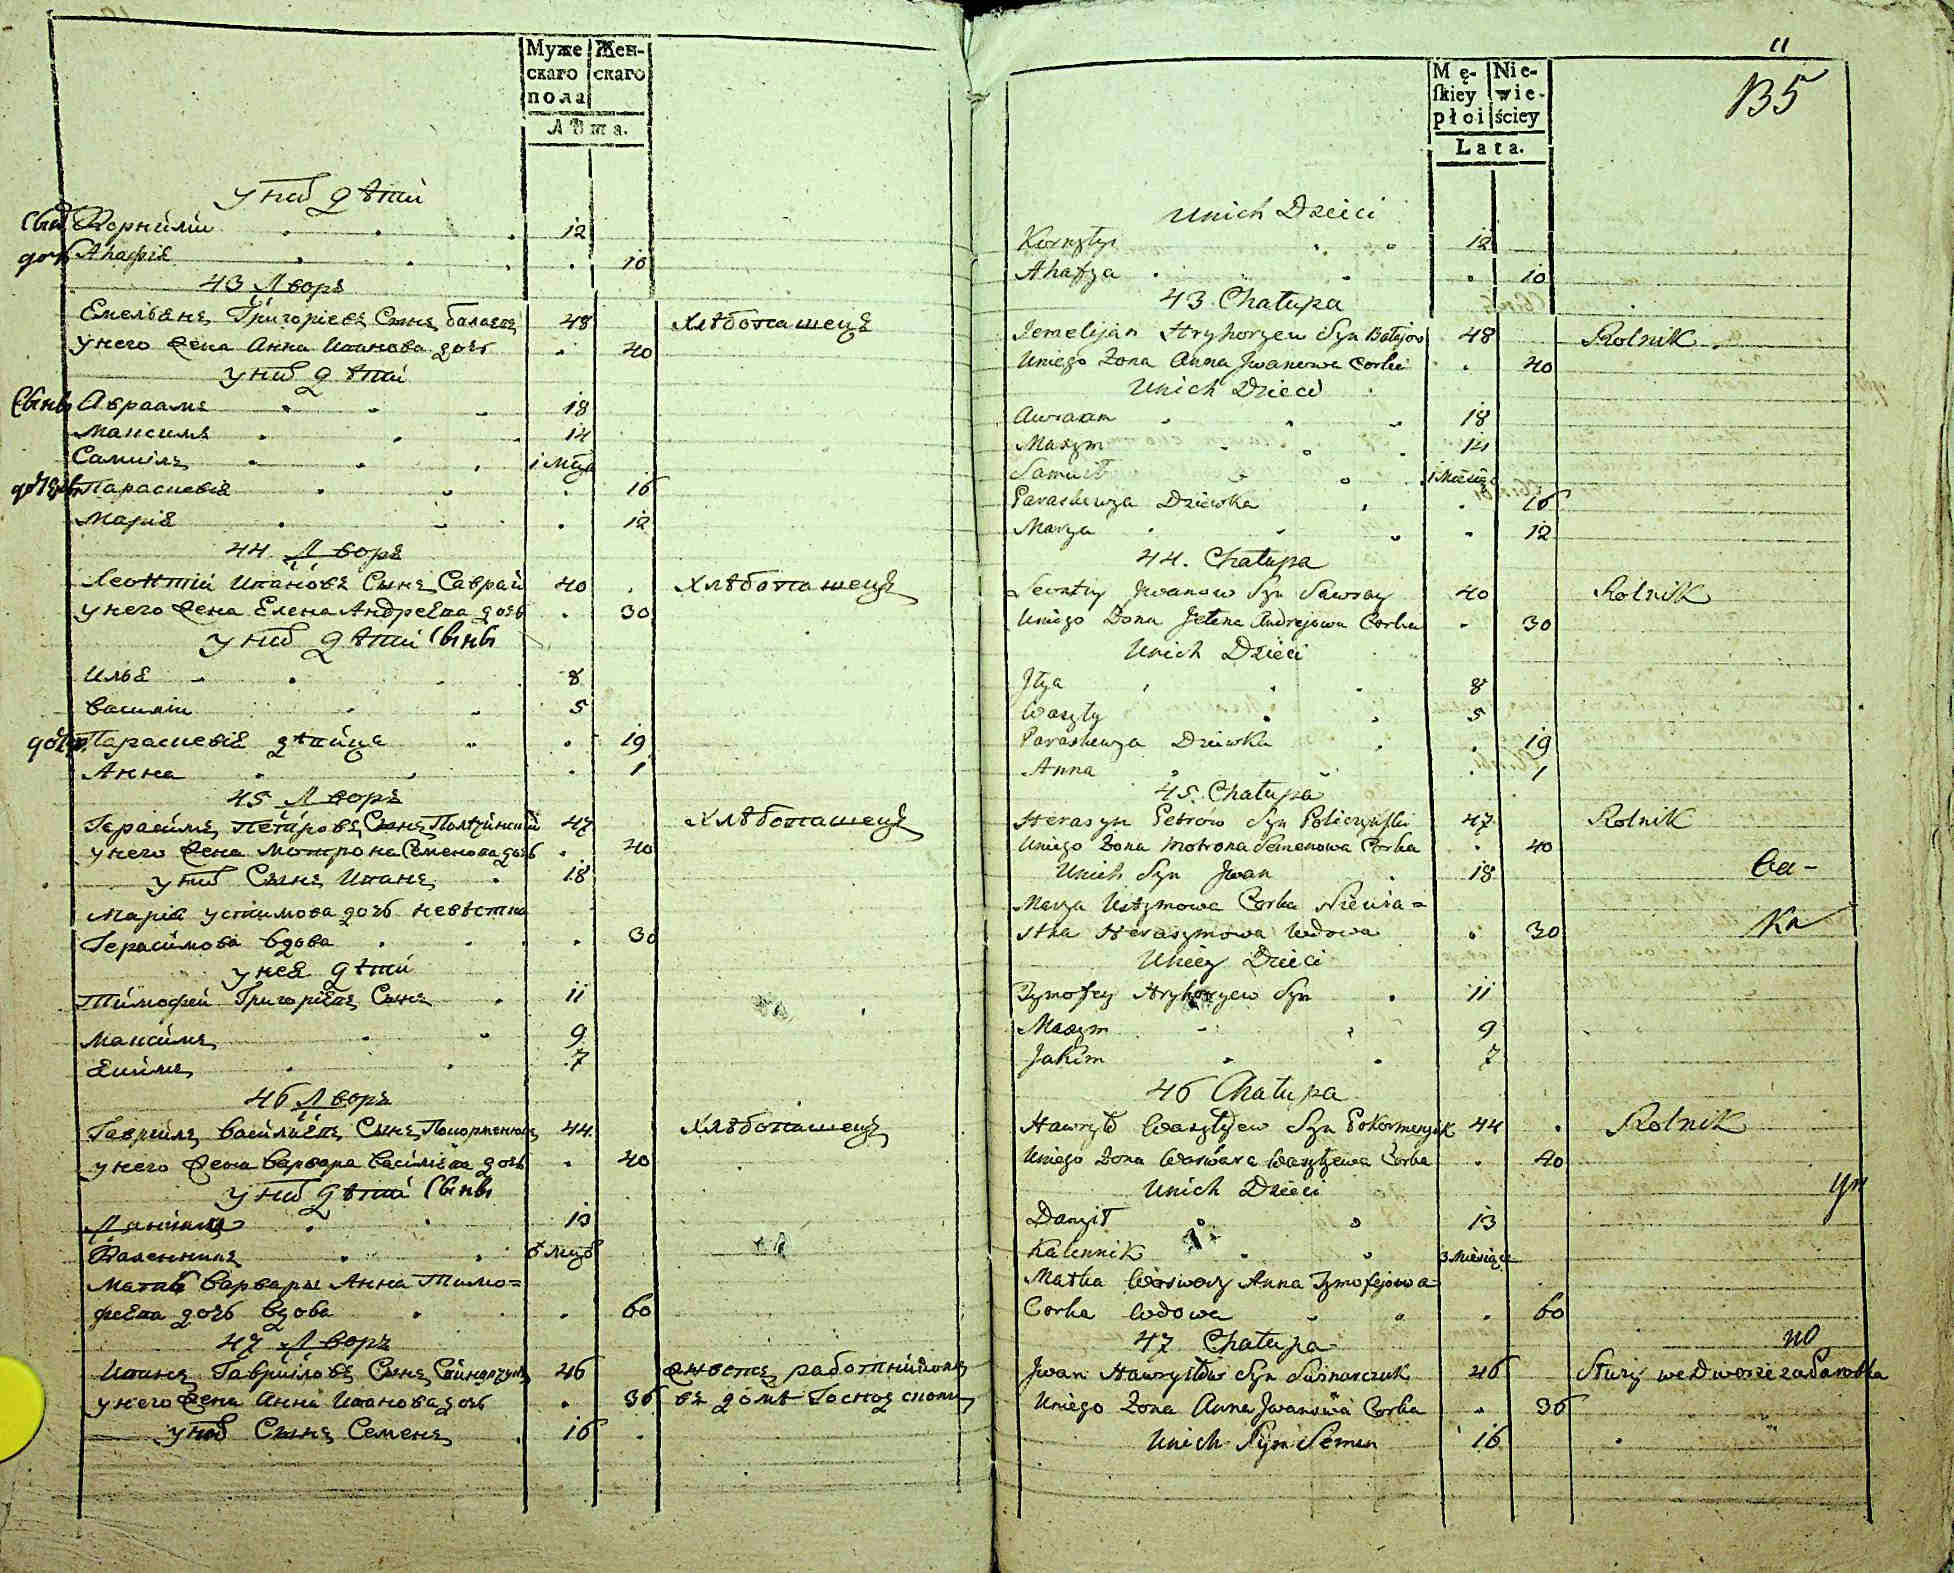 Муже Жен-
скаго скаго
пола
Лѣта.
у них дѣти
сын Корнилій 12
дочь Агафія 10
43 Дворъ
Емельянъ Григоріевъ Сынъ балаевъ 48 Хлѣбопашецъ
у него Жена Анна Иванова дочь 40
у них дѣти
Сыны Авраамъ 18
Максимъ 14
Самуілъ 1 мцъ
дочери Параскевія 16
Марія 12
44 Дворъ
Леонтій Ивановъ Сынъ Саврай 40 Хлѣбопашецъ
у него Жена Елена Андреева дочь 30
у них дѣти Сыны
Илья 8
Василій 5
дочери Параскевія дѣвица 19
Анна 1
45 Дворъ
Герасимъ Петровъ Сынъ 47 Хлѣбопашецъ
у него Жена Мотрона Семенова дочь 40
у них Сынъ Иванъ 18
Марія устимова дочь невѣстка
Герасимова вдова 30
у нея дѣти
Тимофей Григоріевъ Сынъ 11
Максимъ 9
Якимъ 7
46 Дворъ
Гаврилъ Васильевъ Сынъ 44 Хлѣбопашецъ
у него Жена Варвара Васильева дочь 40
у них дѣти Сыны
Данило 13
Каленникъ мцъ
Матка Варвары Анна Тимо=
феева дочь вдова 60
47 Дворъ
Иванъ Гавриловъ Сынъ 46 живетъ работникомъ
у него Жена Анна Иванова дочь 36 въ домѣ
у них Сынъ Семенъ 16
11
135
Mę- Nie-
ſkiey wie-
płoi ściey
Lata.
Unich Dzieci
Kornyły 12
Ahafya 10
43 Chałupa
Jemelijan Hryhoryew Syn Bałajow 48 Rolnik
Uniego Zona Anna Jwanowa Corka 40
Unich Dzieci
Awraam 18
Maxym 14
Samuił 1 Miesiąc
Paraskewya Dziewka 16
Marya 12
44. Chałupa
Leontiy Jwanow Syn Sawray 40 Rolnik
Uniego Zona Jełena Andrejowa Corka 30
Unich Dzieci
Jłya 8
Wasyły 5
Paraskewya Dziewka 19
Anna 1
45. Chałupa
Herasym Petrow Syn 47 Rolnik
Uniego Zona Motrona Semenowa Corka 40
Unich Syn Jwan 18
Marya Ustymowa Corka Niewia=
stka Herasymowa Wdowa 30
Uniey Dzieci
Tymofey Hryhoryew Syn 11
Maxym 9
Jakim 7
46 Chałupa
Hawryło Wasylyew Syn 44 Rolnik
Uniego Zona Warwara Wasylyewa Corka 40
Unich Dzieci
Danył 13
Kalennik 3 Miesiące
Matka Warwary Anna Tymofejowa
Corka Wdowa 60
47 Chałupa
Jwan Hawryłow Syn 46 Służy we Dworze za Parobka
Uniego Zona Anna Jwanowa Corka 36
Unich Syn Semen 16